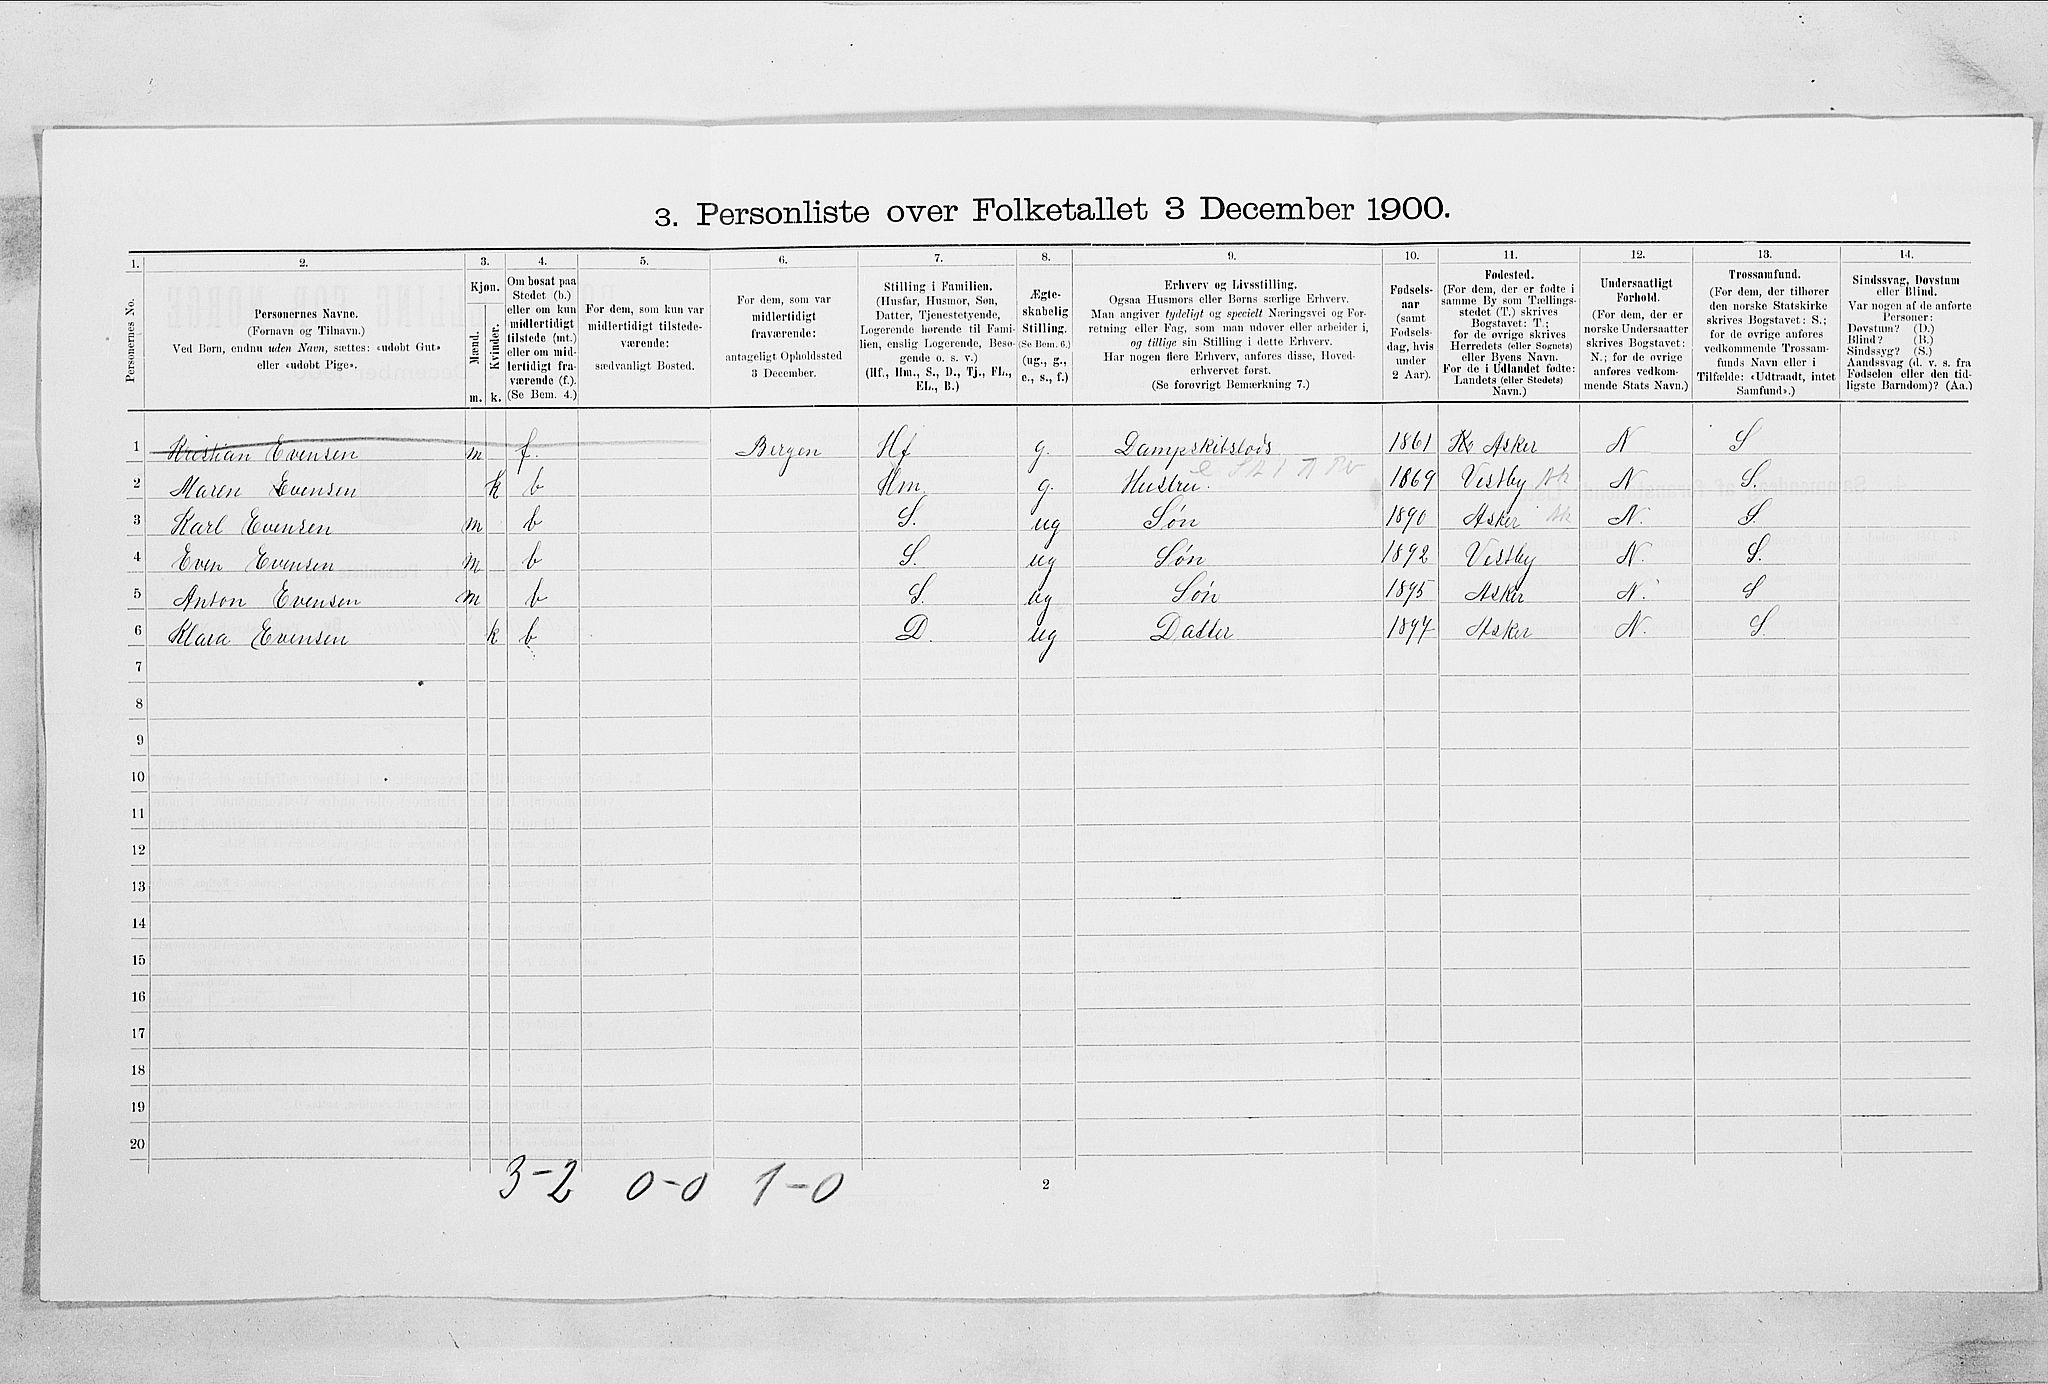 3. Personliste over Folketallet 3 December 1900.
1. 2. 3. 4. 5. 6. 7. 8. 9. 10. 11. 12. 13. 14.
Personernes No.
Personernes Navne.
(Fornavn og Tilnavn.)
Ved Børn, endnu uden Navn, sættes: «udøbt Gut»
eller «udøbt Pige».
Kjøn.
Mænd.
Kvinder.
m. k.
Om bosat paa
Stedet (b.)
eller om kun
midlertidigt
tilstede (mt.)
eller om mid-
lertidigt fra-
værende (f.).
(Se Bem. 4.)
For dem, som kun var
midlertidigt tilstede-
værende:
sædvanligt Bosted.
For dem, som var
midlertidigt
fraværende:
antageligt Opholdssted
3 December.
Stilling i Familien.
(Husfar, Husmor, Søn,
Datter, Tjenestetyende,
Logerende hørende til Fami-
lien, enslig Logerende, Besø-
gende o. s. v.)
(Hf., Hm., S., D., Tj., FL.,
EL., B.)
Ægte-
skabelig
Stilling.
(Se Bem. 6.)
(ug., g.,
e., s., f.)
Erhverv og Livsstilling.
Ogsaa Husmors eller Børns særlige Erhverv.
Man angiver tydeligt og specielt Næringsvei og For-
retning eller Fag, som man udøver eller arbeider i,
og tillige sin Stilling i dette Erhverv.
Har nogen flere Erhverv, anføres disse, Hoved-
erhvervet først.
(Se forøvrigt Bemærkning 7.)
Fødsels-
aar
(samt
Fødsels-
dag, hvis
under
2 Aar).
Fødested.
(For dem, der er fødte i
samme By som Tællings-
stedet (T.) skrives
Bogstavet: T.;
for de øvrige skrives
Herredets (eller Sognets)
eller Byens Navn.
For de i Udlandet fødte:
Landets (eller Stedets)
Navn.)
Undersaatligt
Forhold.
(For dem, der er
norske Undersaatter
skrives Bogstavet:
N.; for de øvrige
anføres vedkom-
mende Stats Navn.)
Trossamfund.
(For dem, der tilhører
den norske Statskirke
skrives Bogstavet: S.;
for de øvrige anføres
vedkommende Trossam-
funds Navn eller i
Tilfælde: «Udtraadt, intet
Samfund».)
Sindssvag, Døvstum
eller Blind.
Var nogen af de anførte
Personer:
Døvstum? (D.)
Blind? (B.)
Sindssyg? (S.)
Aandssvag (d. v. s. fra
Fødselen eller den tid-
ligste Barndom)? (Aa.)
1 Kristian Evensen m f. Bergen Hf g. Dampskibslods 1861 Asker N S
2 Maren Evensen k b Hm g. Hustru. 1869 Vestby Ak N S.
3 Karl Evensen m b S. ug Søn 1890 Asker Ak N. S.
4 Even Evensen m b S. ug Søn 1892 Vestby N. S.
5 Anton Evensen m b S. ug Søn 1895 Asker N. S
6 Klara Evensen k b D. ug Datter 1897 Asker N. S.
7
8
9
10
11
12
13
14
15
16
17
18
19
20
3-2 0-0 1-0
2